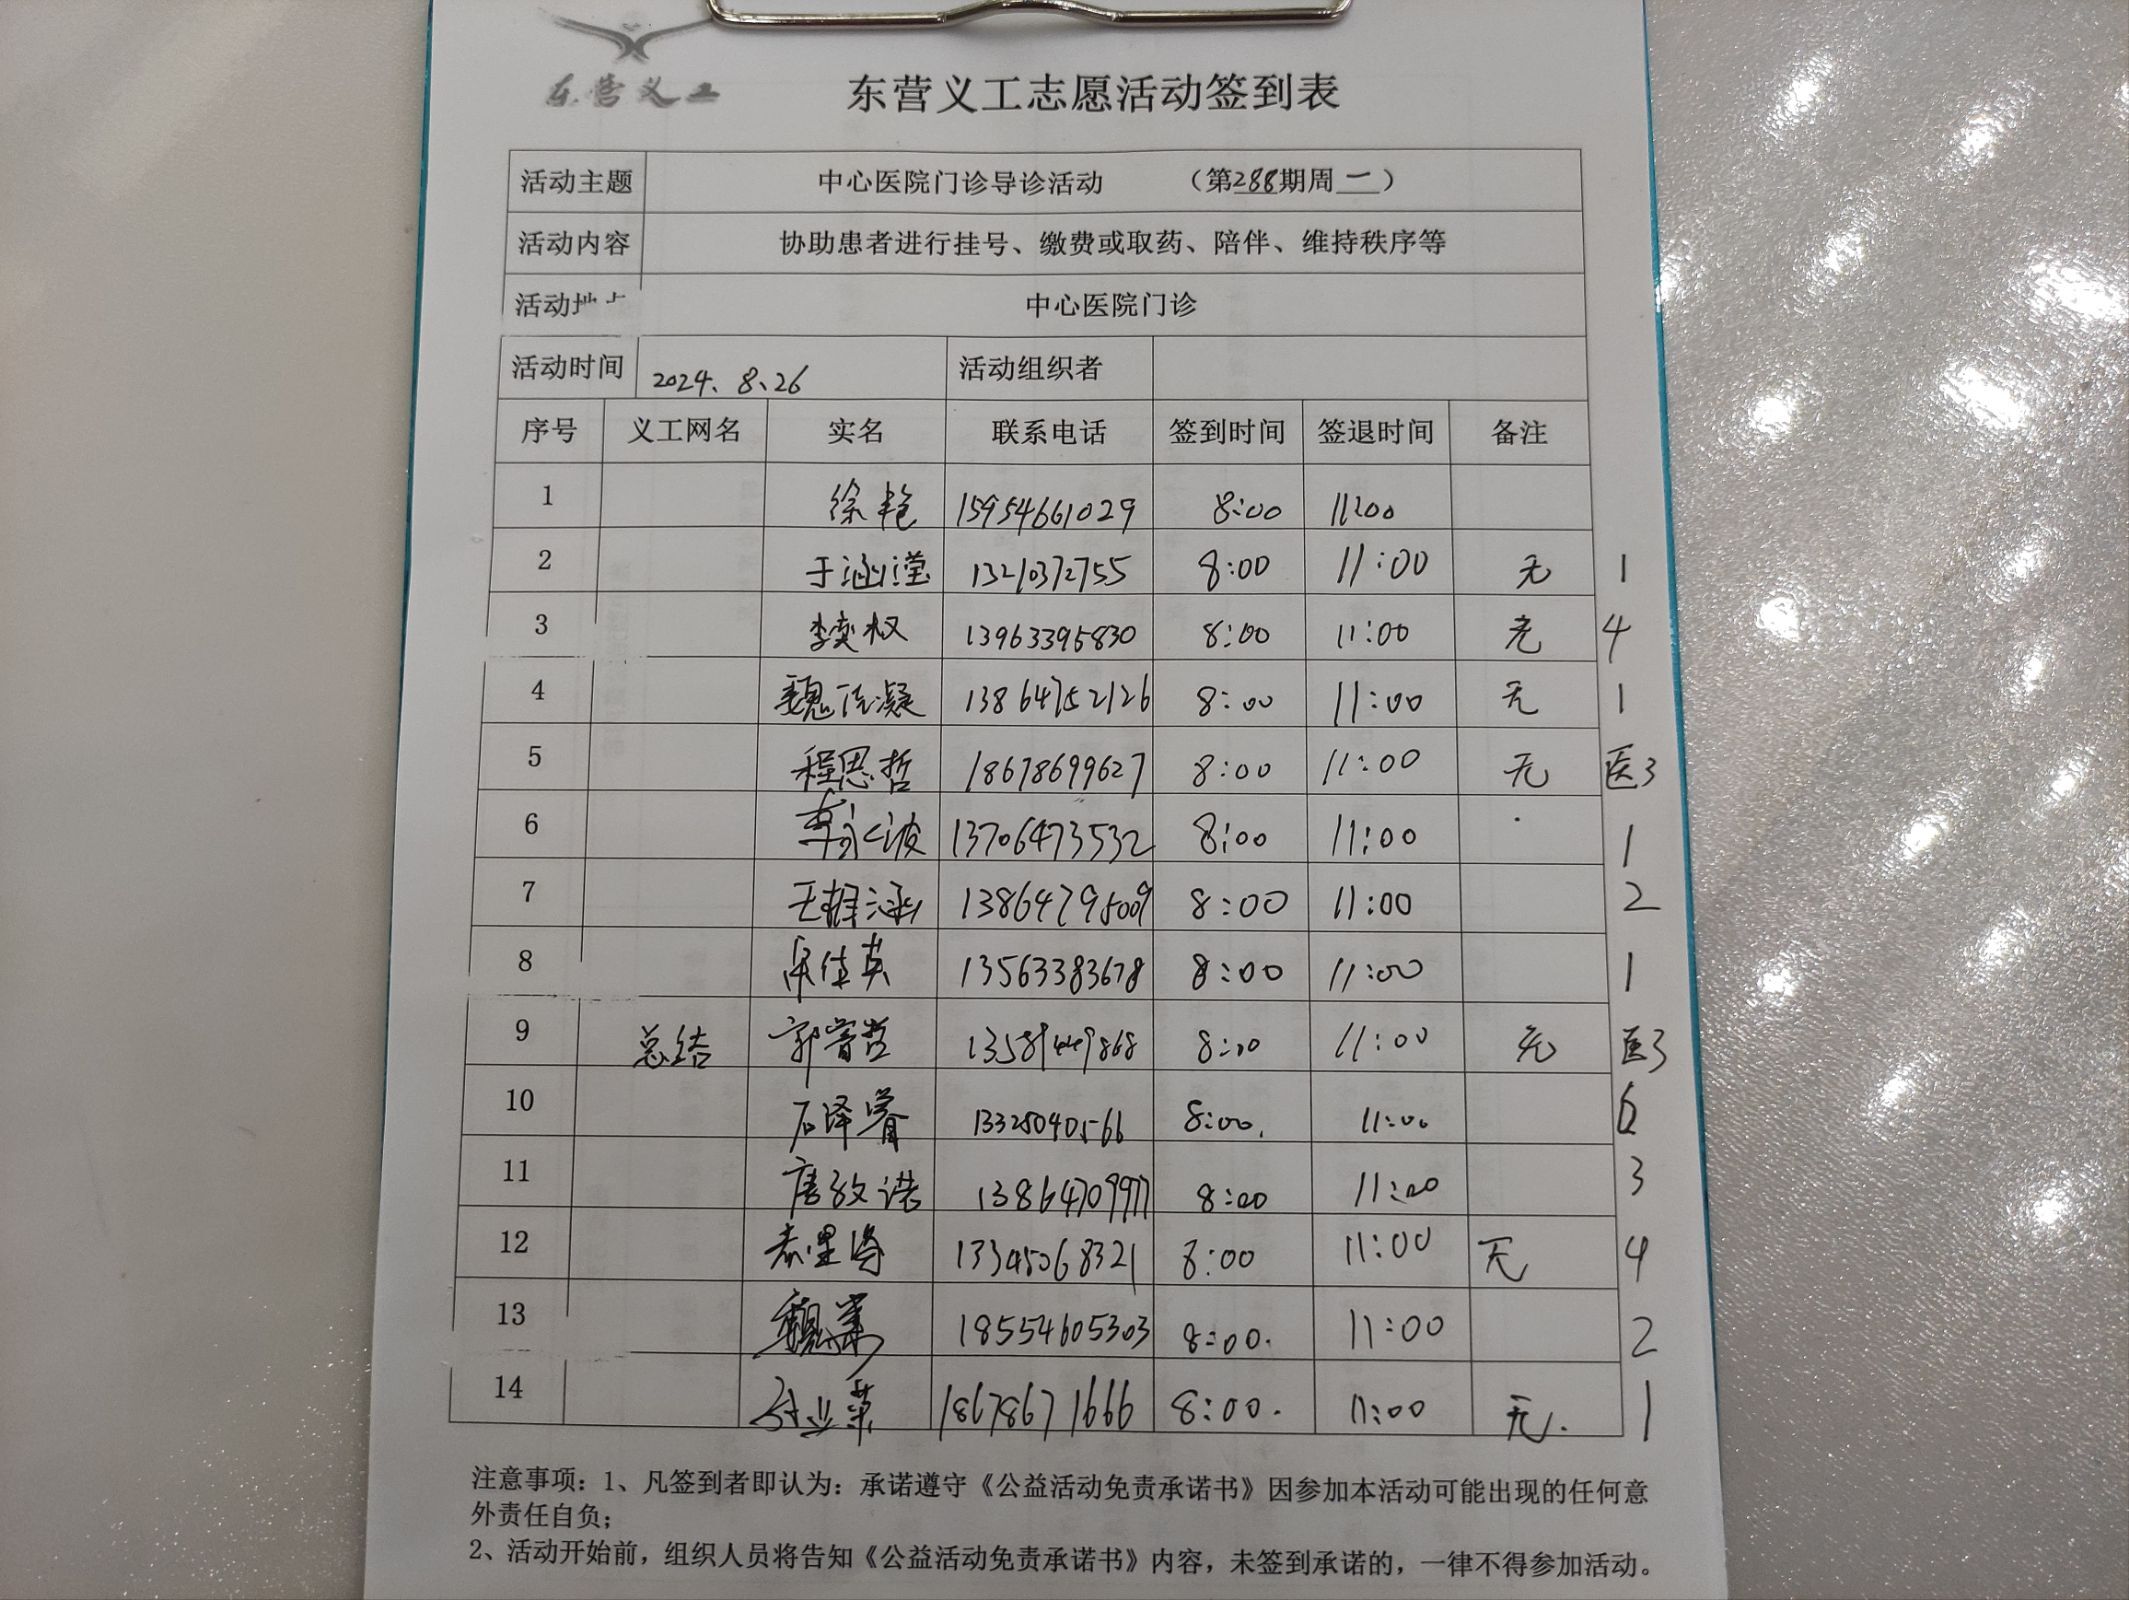 东营义工
东营义工志愿活动签到表
活动主题 中心医院门诊导诊活动 （第288期周一）
活动内容 协助患者进行挂号、缴费或取药、陪伴、维持秩序等
活动地点 中心医院门诊
活动时间 2024.8.26 活动组织者
序号 义工网名 实名 联系电话 签到时间 签退时间 备注
1 徐艳 15954661029 8:00 11:00
2 于涵滢 13210372755 8:00 11:00 无 1
3 李奕权 13963395830 8:00 11:00 无 4
4 魏凝 13864752126 8:00 11:00 无 1
5 程思哲 18678699627 8:00 11:00 无 医3
6 13706473532 8:00 11:00 1
7 王涵 13864795009 8:00 11:00 2
8 佳英 13563383678 8:00 11:00 1
9 总结 郭睿哲 13589449868 8:00 11:00 无 医3
10 石泽睿 13325040566 8:00. 11:00
11 唐诺 13864709977 8:00 11:00 3
12 13345068321 8:00 11:00 无 4
13 魏 18554605303 8:00. 11:00 2
14 18678671666 8:00. 11:00 无. 1
注意事项：1、凡签到者即认为：承诺遵守《公益活动免责承诺书》因参加本活动可能出现的任何意
外责任自负；
2、活动开始前，组织人员将告知《公益活动免责承诺书》内容，未签到承诺的，一律不得参加活动。